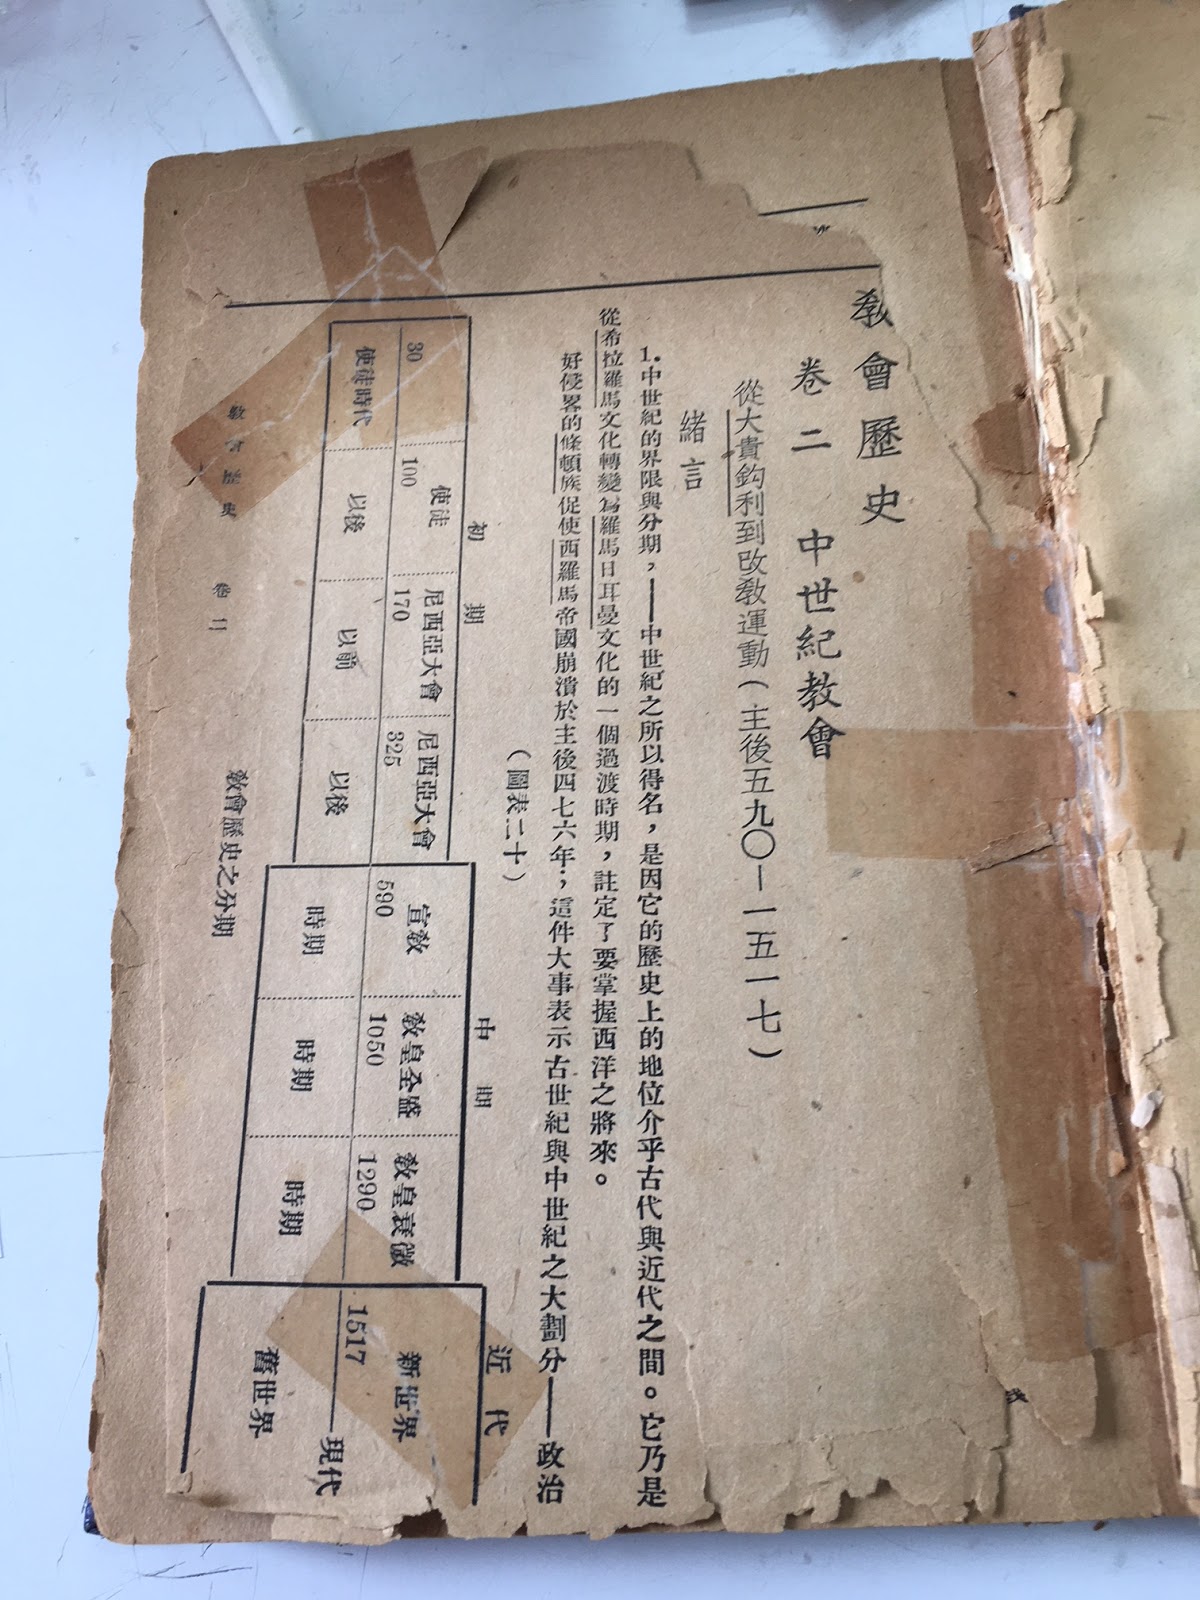 教會歷史
卷二 中世紀教會
從大貴鈎利到改教運動(主後五九〇－一五一七)
緒言
1.中世紀的界限與分期，——中世紀之所以得名，是因它的歷史上的地位介乎古代與近代之間。它乃是
從希拉羅馬文化轉變爲羅馬日耳曼文化的一個過渡時期，註定了要掌握西洋之將來。
好侵畧的條頓族促使西羅馬帝國崩潰於主後四七六年；這件大事表示古世紀與中世紀之大劃分——政治
(圖表二十)
初期 中期 近代
使徒 尼西亞大會 尼西亞大會 宣教 教皇全盛 教皇衰微 新世界
30 100 170 325 590 1050 1290 1517——現代
使徒時代 以後 以前 以後 時期 時期 時期 舊世界
教會歷史之分期
教會歷史 卷二